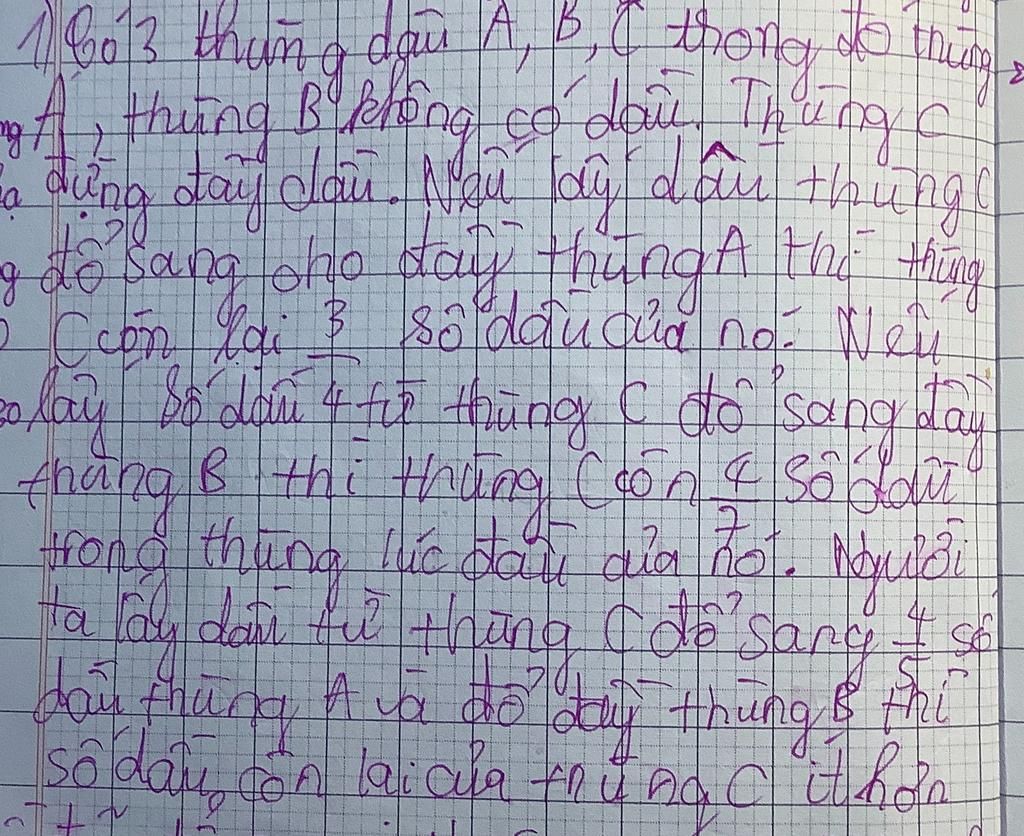 1) Có 3 thùng dầu A, B, C trong đó thùng
A, thùng B không có dầu. Thùng C
đựng đầy dầu. Nếu lấy dầu thùng C
đổ sang cho đầy thùng A thì thùng
C còn lại 3/4 số dầu của nó. Nếu
lấy số dầu từ thùng C đổ sang đầy
thùng B thì thùng C còn 4/7 số dầu
trong thùng lúc đầu của nó. Người
ta lấy dầu từ thùng C đổ sang 4/5 số
dầu thùng A và đổ đầy thùng B thì
số dầu còn lại của thùng C ít hơn